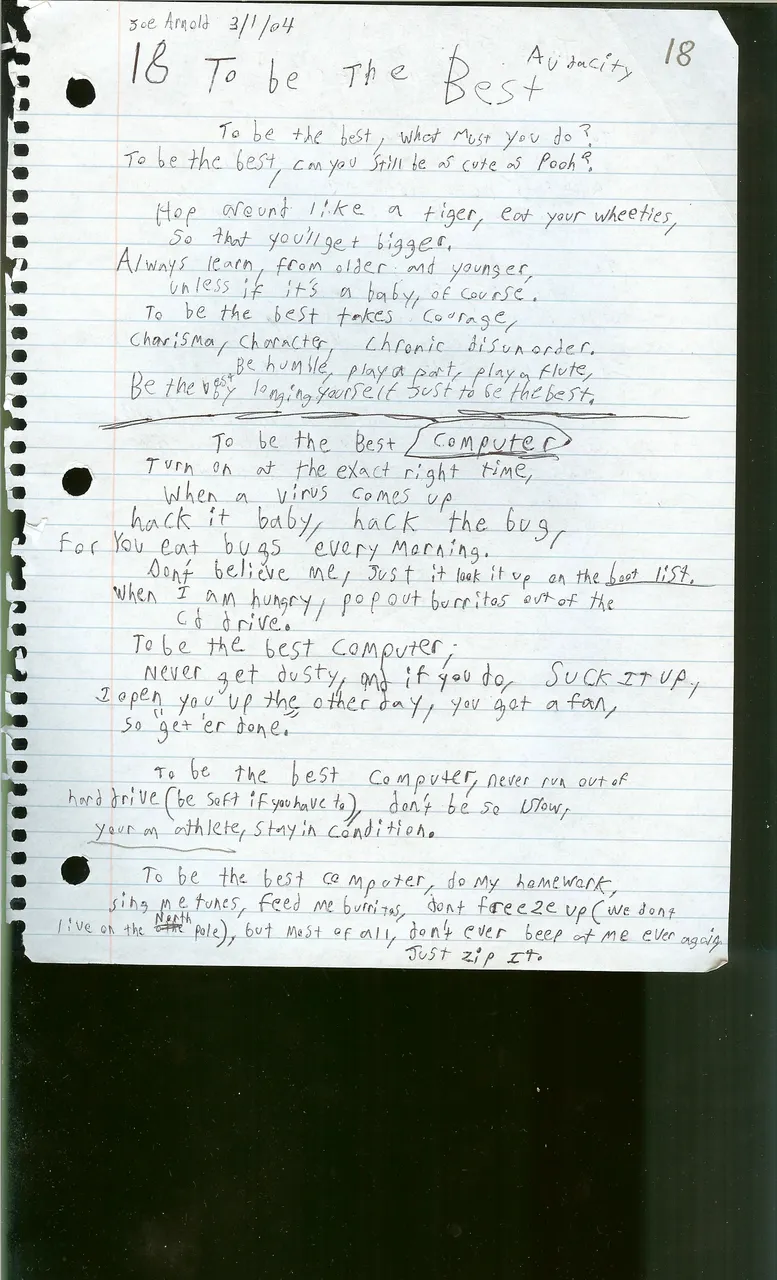 Joe Arnold 3/1/04
18 To be The Best Audacity 18
To be the best, what must you do?
To be the best, can you still be as cute as Pooh?
Hop around like a tiger, eat your wheeties,
So that you'll get bigger.
Always learn, from older and younger,
unless if it's a baby, of course.
To be the best takes Courage,
Charisma, Character, Chronic disunorder.
Be humble, play a part, play a flute,
Be the best by longing yourself just to be the best.
To be the Best Computer
Turn on at the exact right time,
When a virus comes up
hack it baby, hack the bug,
For You eat bugs every Morning.
Don't believe me, Just it look it up on the boot list.
When I am hungry, pop out burritos out of the
Cd drive.
To be the best Computer,
Never get dusty, and if you do, SUCK IT UP,
I open you up the other day, you got a fan,
so "get 'er done."
To be the best Computer, never run out of
hard drive (be soft if you have to), don't be so slow,
your an athlete, stay in condition.
To be the best computer, do my homework,
sing me tunes, feed me burritos, dont freeze up (we dont
live on the North pole), but most of all, don't ever beep at me ever again.
Just zip It.